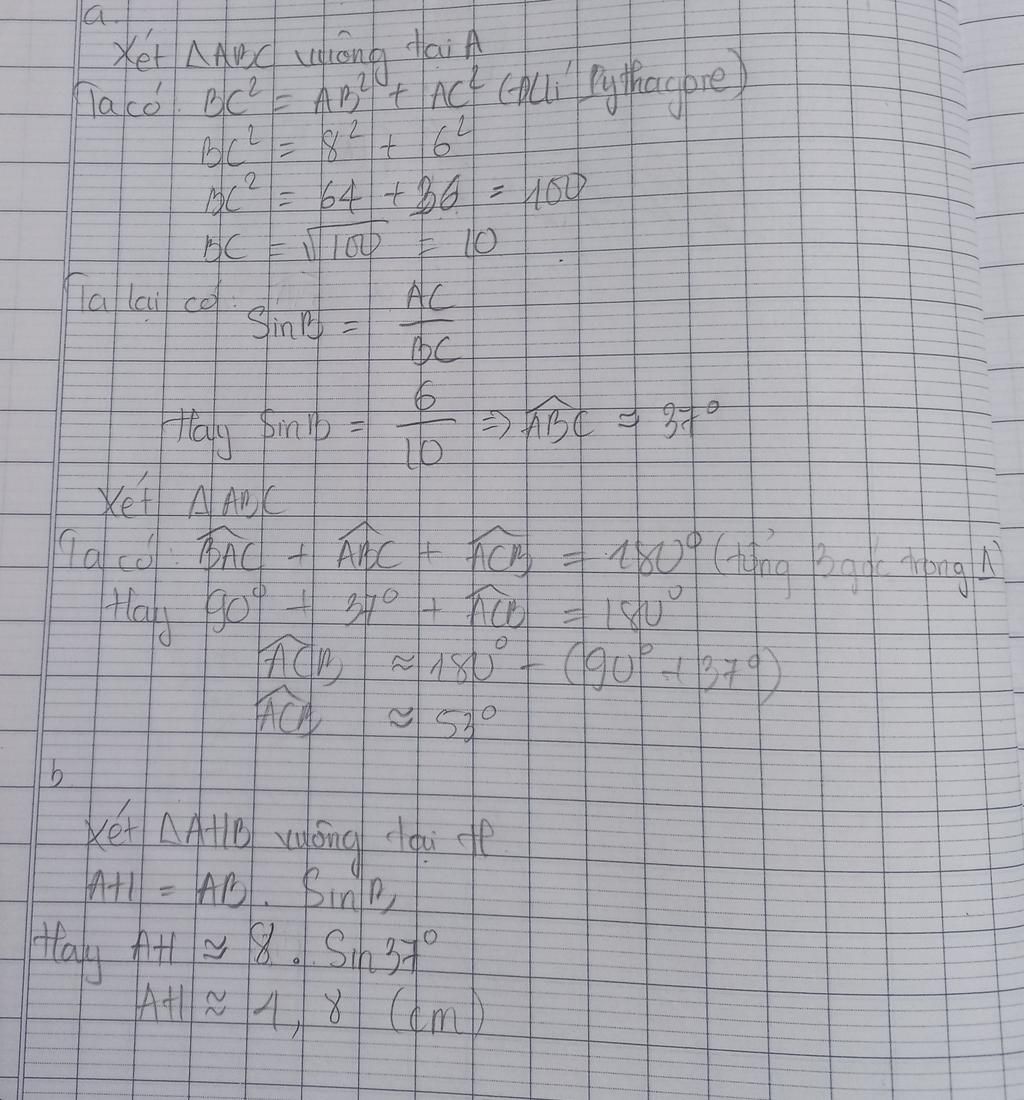 a.
Xét ΔABC vuông tại A
Ta có: BC² = AB² + AC² (Đlí Pythagore)
BC² = 8² + 6²
BC² = 64 + 36 = 100
BC = √100 = 10
Ta lại có: SinB = AC/BC
Hay SinB = 6/10 ⇒ ABC ≈ 37°
Xét ΔABC
Ta có: BAC + ABC + ACB = 180° (tổng 3 góc trong Δ)
Hay 90° + 37° + ACB = 180°
ACB ≈ 180° - (90° + 37°)
ACB ≈ 53°
b.
Xét ΔAHB vuông tại H
AH = AB . SinB
Hay AH ≈ 8 . Sin37°
AH ≈ 4,8 (cm)